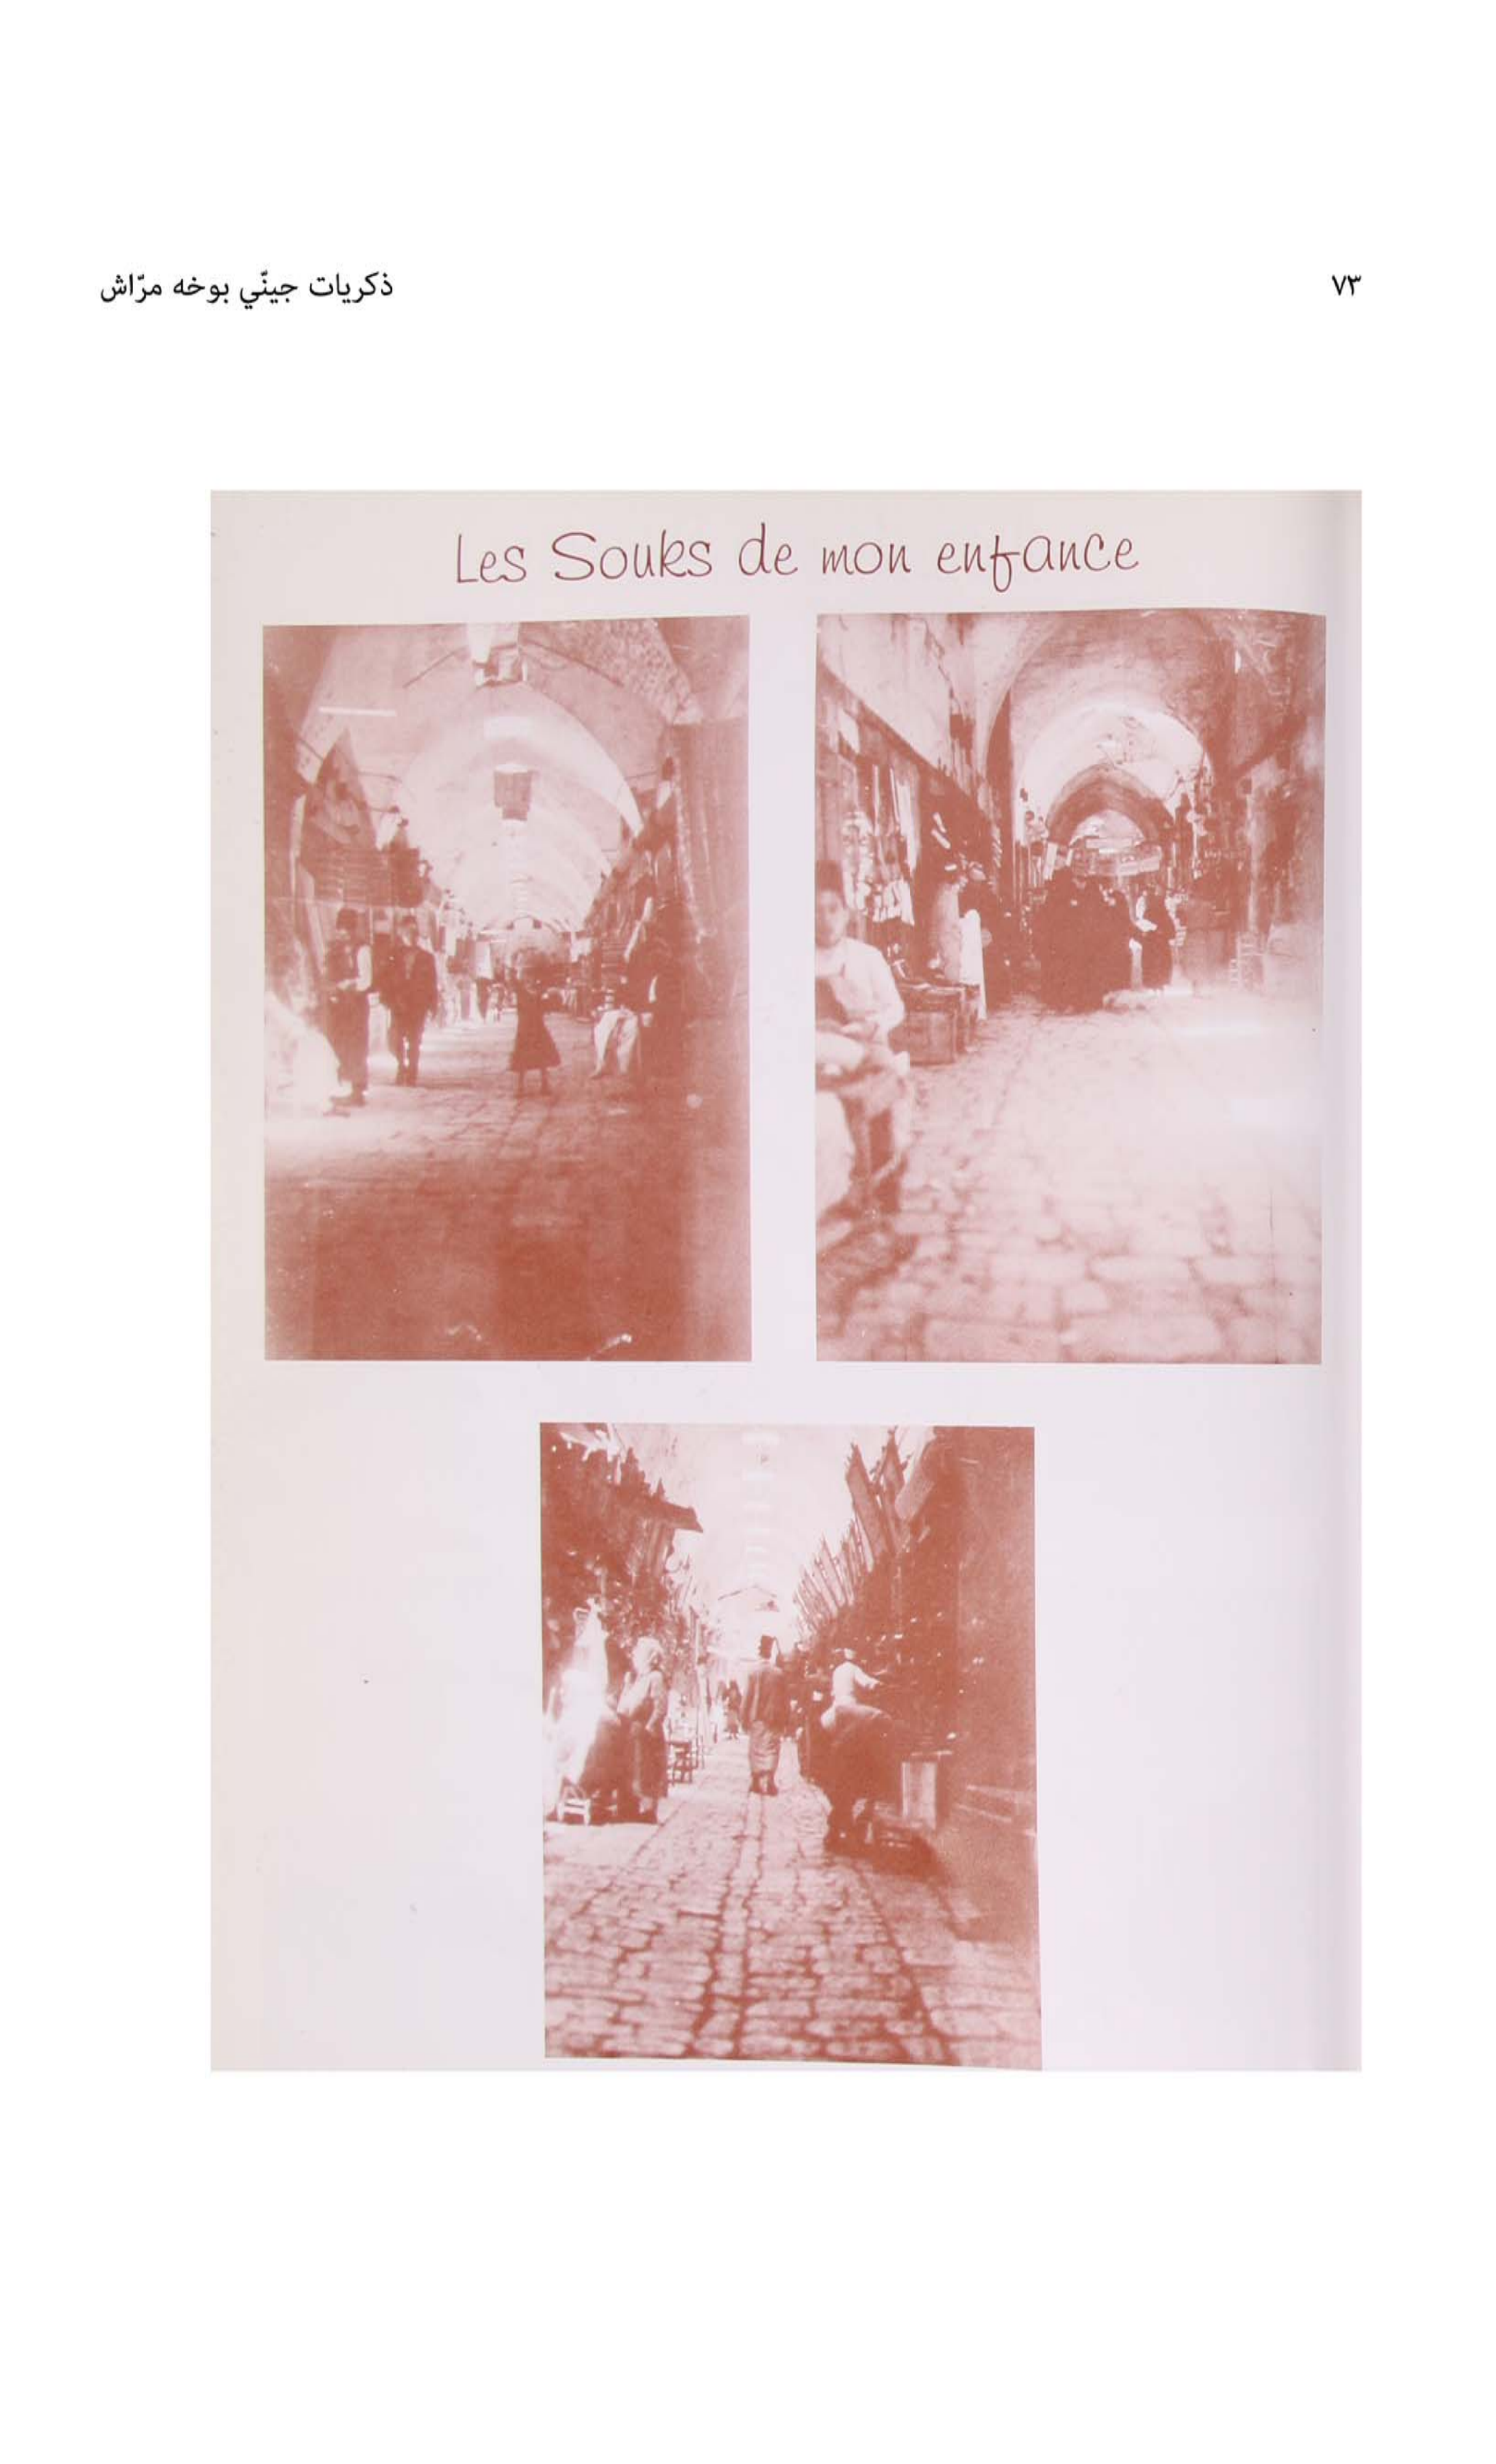 ذكريات جينّي بوخه مرّاش
٧٣
Les Souks de mon enfance